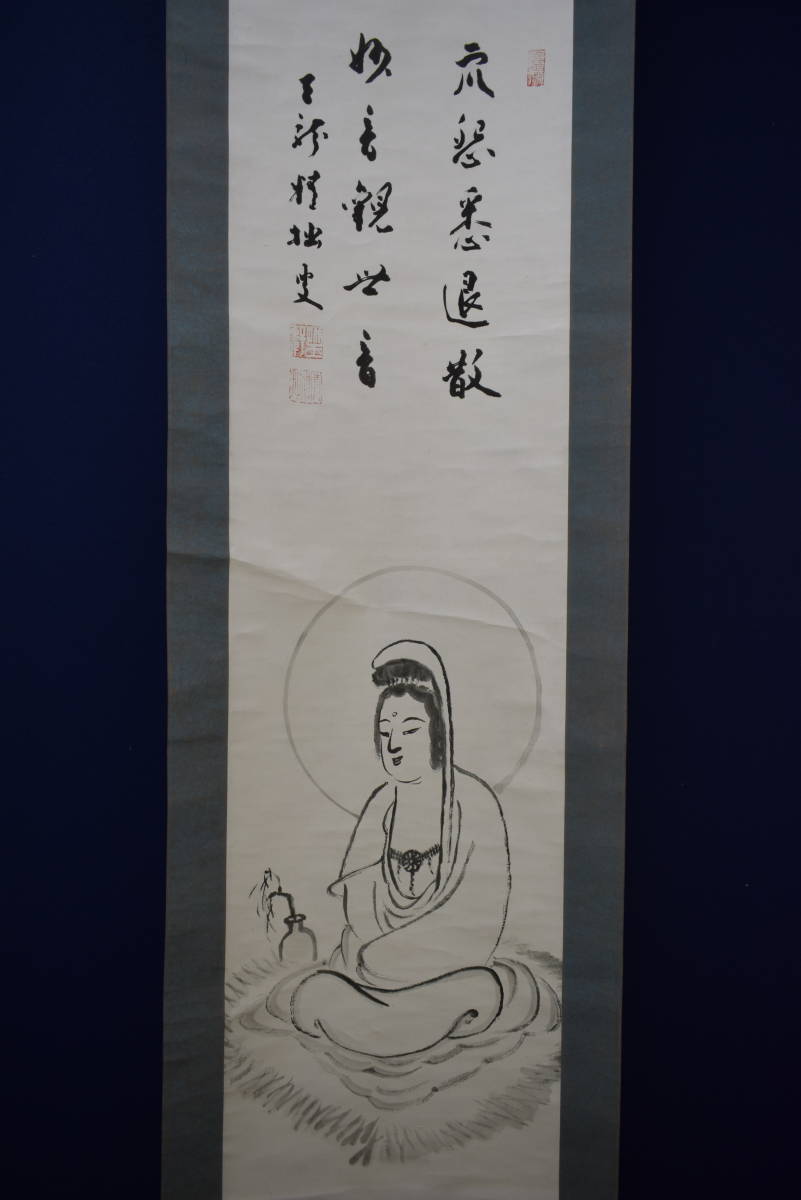 衆怨悉退散
妙音觀世音
天龍精拙叟